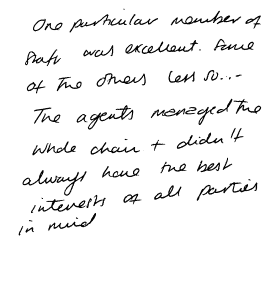 One particular member of
staff was excellent. Some
of the others less so...
The agents managed the
whole chain + didn't
always have the best
interests of all parties
in mind